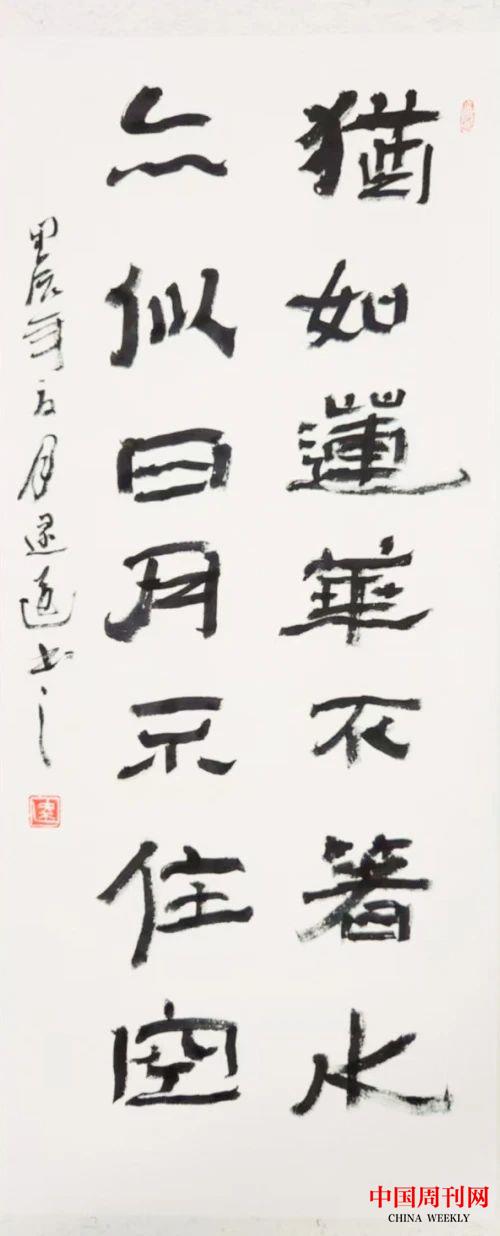 猶如蓮華不箸水
亦似日月不住空
甲辰年夏月书之
中国周刊网
CHINA WEEKLY